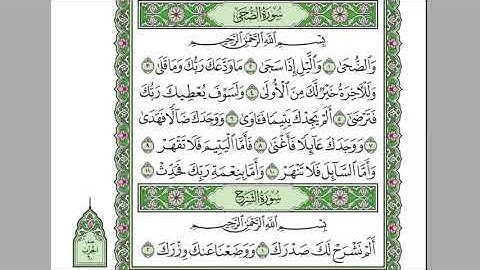 سُورَةُ الضُّحَى
بِسْمِ اللَّهِ الرَّحْمَٰنِ الرَّحِيمِ
وَالضُّحَىٰ ١ وَاللَّيْلِ إِذَا سَجَىٰ ٢ مَا وَدَّعَكَ رَبُّكَ وَمَا قَلَىٰ ٣
وَلَلْآخِرَةُ خَيْرٌ لَكَ مِنَ الْأُولَىٰ ٤ وَلَسَوْفَ يُعْطِيكَ رَبُّكَ
فَتَرْضَىٰ ٥ أَلَمْ يَجِدْكَ يَتِيمًا فَآوَىٰ ٦ وَوَجَدَكَ ضَالًّا فَهَدَىٰ
٧ وَوَجَدَكَ عَائِلًا فَأَغْنَىٰ ٨ فَأَمَّا الْيَتِيمَ فَلَا تَقْهَرْ ٩
وَأَمَّا السَّائِلَ فَلَا تَنْهَرْ ١٠ وَأَمَّا بِنِعْمَةِ رَبِّكَ فَحَدِّثْ ١١
سُورَةُ الشَّرْحِ
بِسْمِ اللَّهِ الرَّحْمَٰنِ الرَّحِيمِ
أَلَمْ نَشْرَحْ لَكَ صَدْرَكَ ١ وَوَضَعْنَا عَنْكَ وِزْرَكَ ٢